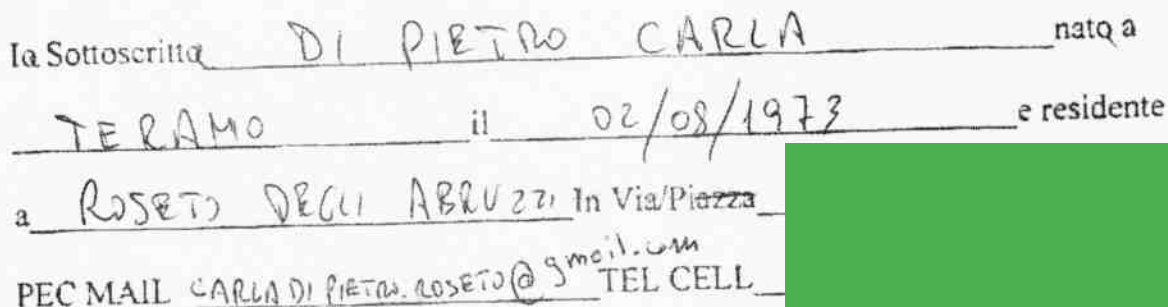 Ia Sottoscritta DI PIETRO CARLA nata a
TERAMO il 02/08/1973 e residente
a ROSETO DEGLI ABRUZZI In Via/Piazza
PEC MAIL CARLADIPIETRO.ROSETO@gmail.com TEL CELL